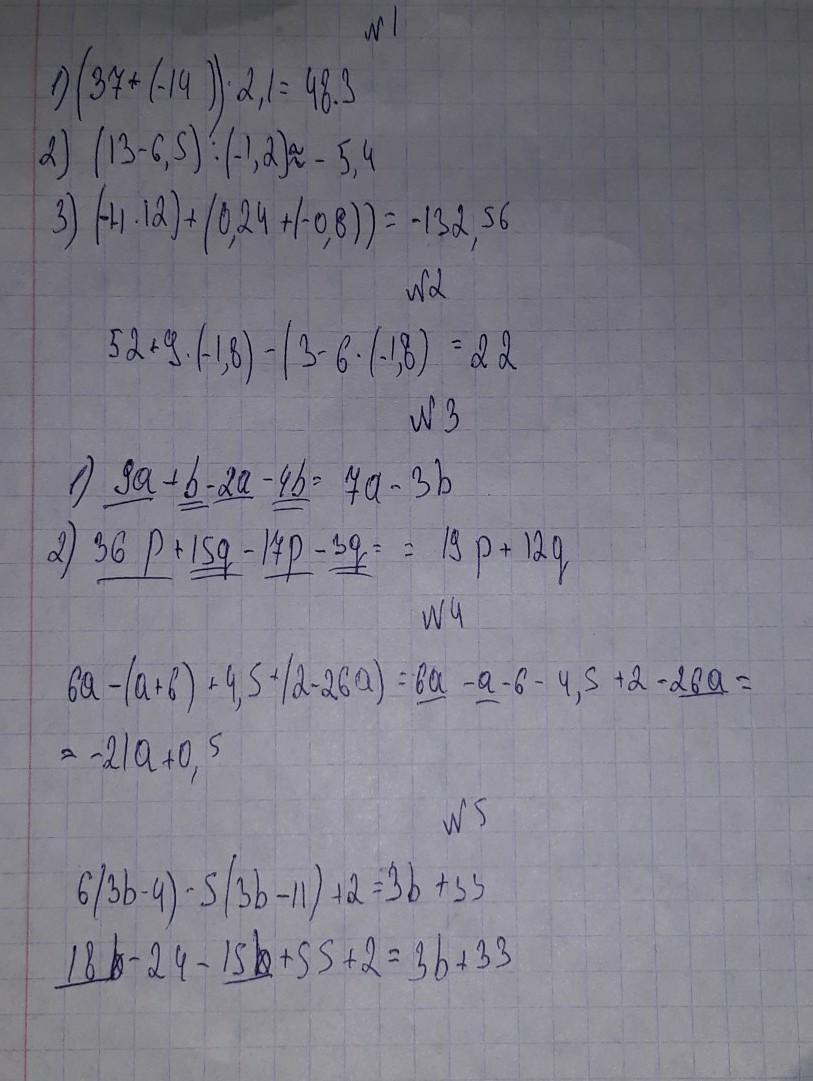 №1
1) (37+(-14))·2,1=48.3
2) (13-6,5):(-1,2)≈-5,4
3) (-11·12)+(0,24+(-0,8))=-132,56
№2
52+9·(-1,8)-(3-6·(-1,8)=22
№3
1) 9a+b-2a-4b=7a-3b
2) 36p+15q-17p-3q==19p+12q
№4
6a-(a+6)+4,5+(2-26a)=6a-a-6-4,5+2-26a=
=-21a+0,5
№5
6(3b-4)-5(3b-11)+2=3b+33
18b-24-15b+55+2=3b+33